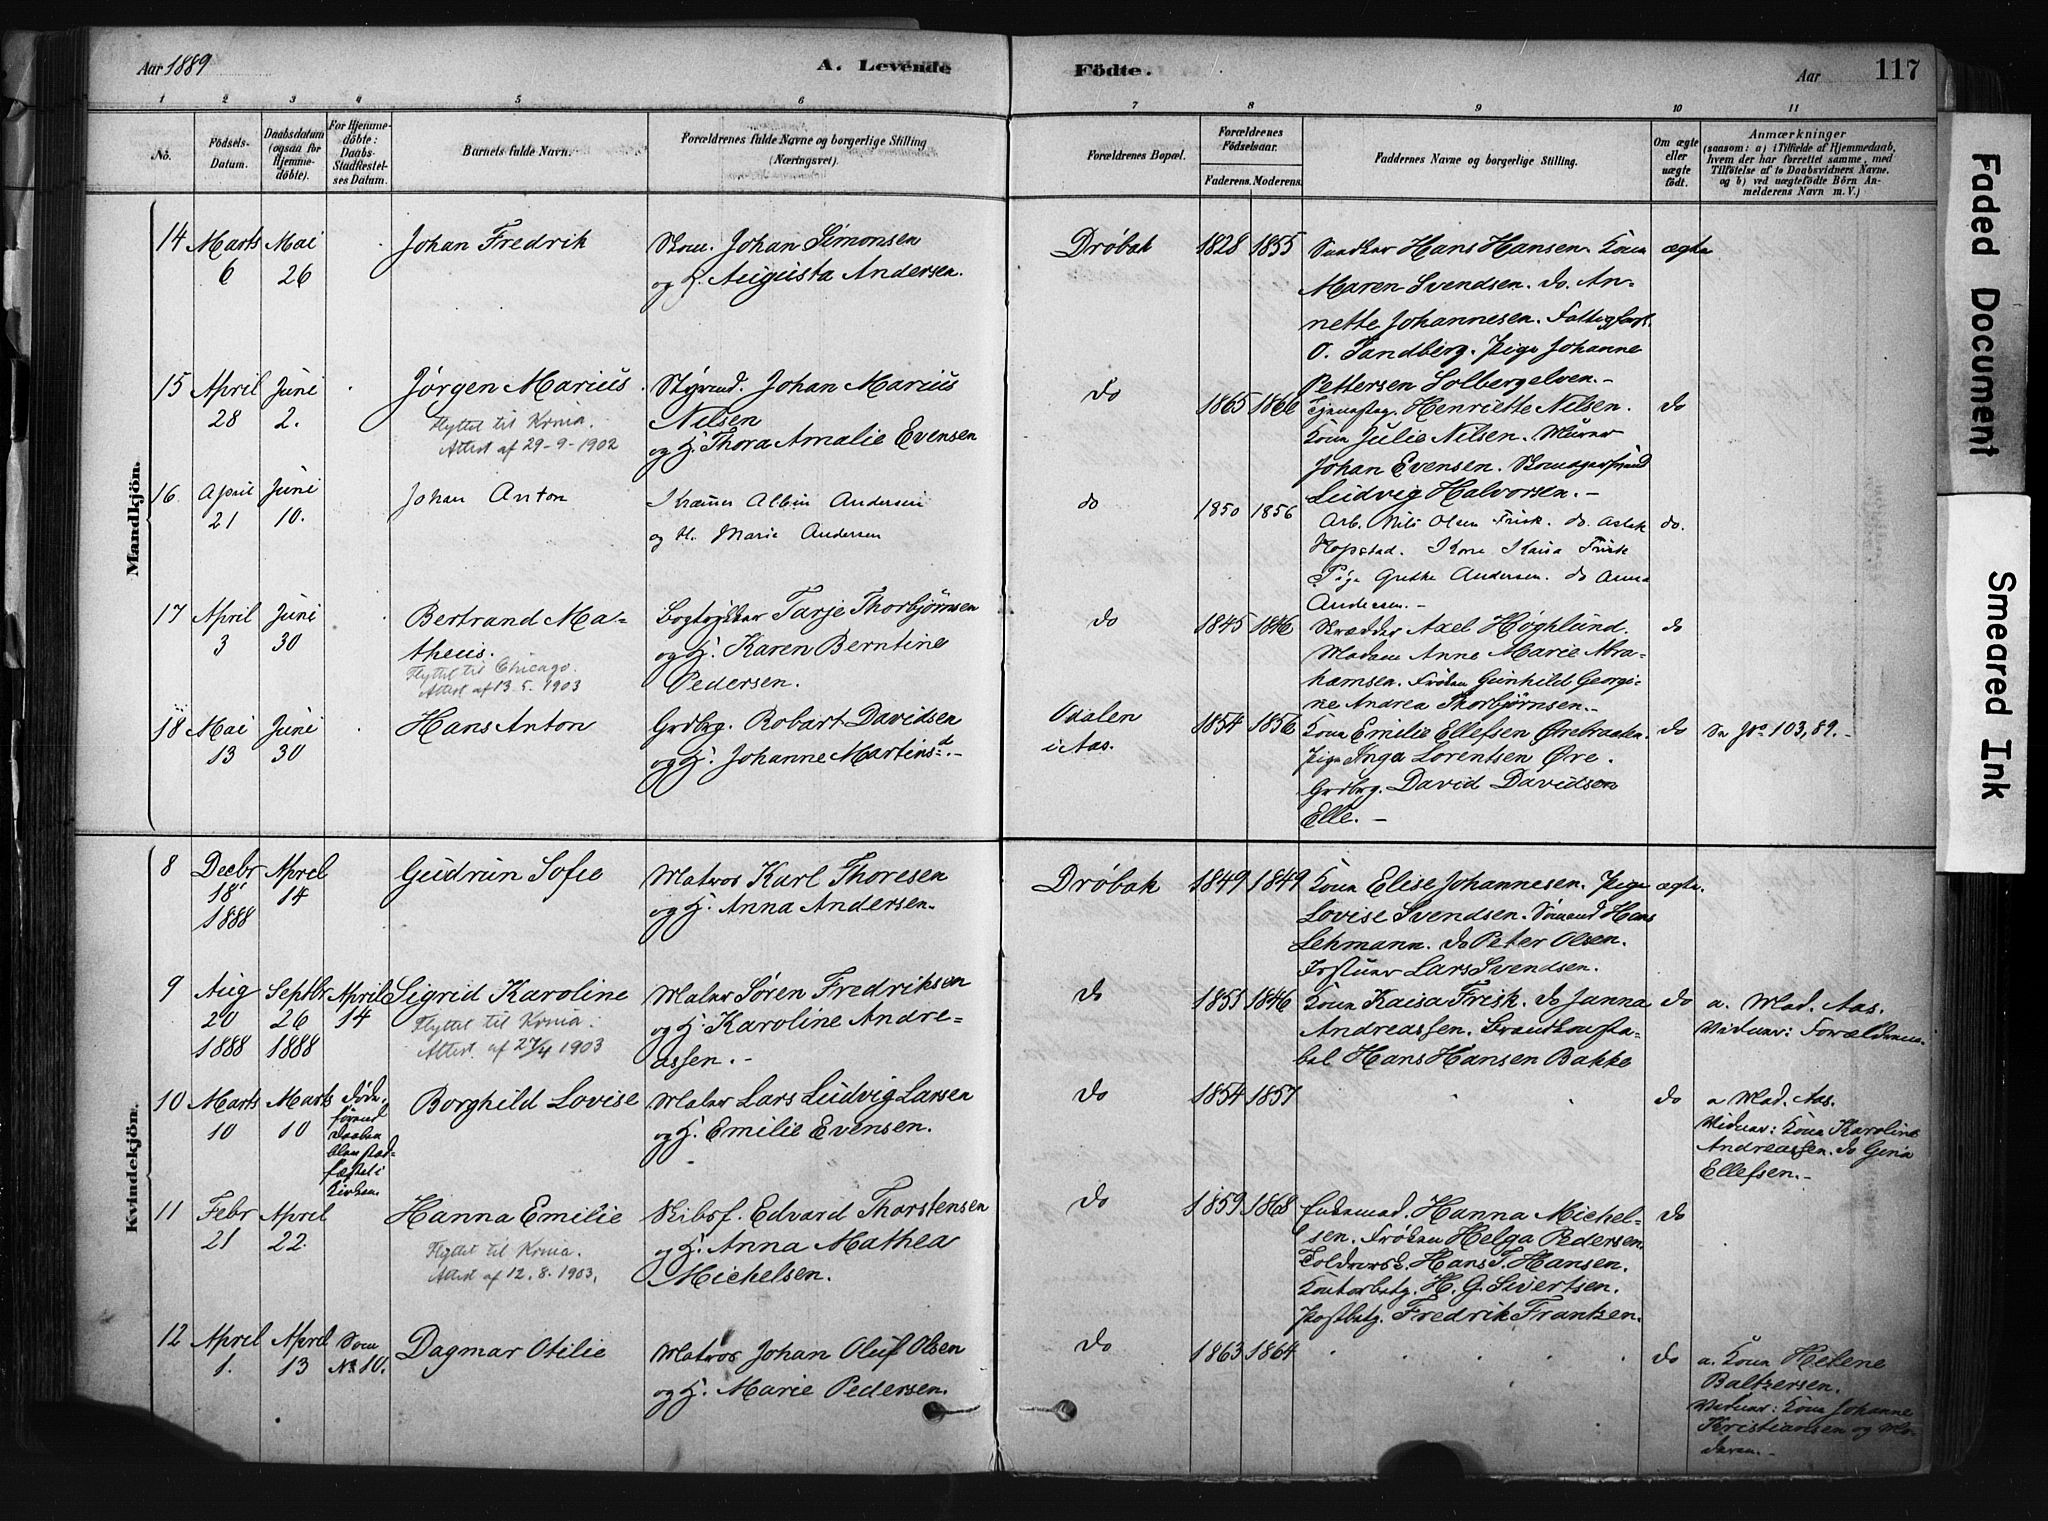 Aar 1889
A. Levende
Födte.
Aar
117
1 2 3 4 5 6 7 8 9 10 11
No.
Födsels-
Datum.
Daabsdatum
(ogsaa for
Hjemme-
döbte).
For Hjemme-
döbte:
Daabs-
Stadfæstel-
ses Datum.
Barnets fulde Navn.
Forældrenes fulde Navne og borgerlige Stilling
(Næringsvei).
Forældrenes Bopæl.
Forældrenes
Födselsaar.
Faderens. Moderens.
Faddernes Navne og borgerlige Stilling.
Om ægte
eller
uægte
födt.
Anmærkninger
(saasom: a) i Tilfælde af Hjemmedaab,
hvem der har forrettet samme, med
Tilföielse af to Daabsvidners Navne.
og b) ved uægtefödte Börn An-
melderens Navn m. V.)
Mandkjön.
14
Marts
6
Mai
26
Johan Fredrik
Skom. Johan Simonsen
og H. Augusta Andersen.
Drøbak
1828 1855
Hans Hansen. Kone
Maren Svendsen. do. An-
nette Johannesen.
O. Sandberg. Pige Johanne
Pettersen Solbergelven.-
ægte
15
April
28
Juni
2.
Jørgen Marius
Flyttet til Krnia.
Attest af 29-9-1902
Styrmd. Johan Marius
Nilsen
og H. Thora Amalie Evensen
do
1865 1866
Henriette Nilsen.
Kone Julie Nilsen. Murer
Johan Evensen.
Ludvig Halvorsen.-
do
16
April
21
Juni
10.
Johan Anton
Kræmer Albin Andersen
og H. Marie Andersen
do
1850 1856
Arb. Nils Olsen Frisk. do. Aslak
Hopstad. Kone Kaisa Frisk
Pige Grethe Andersen. do Anna
Andersen.-
do.
17
April
3
Juni
30
Bertrand Ma-
theus.
Flyttet til Chicago.
Attest af 13.5.1903
Bogtrykker Tarje Thorbjørnsen
og H. Karen Berntine
Pedersen.
do
1845 1846
Skrædder Axel Høghlund.
Madam Anne Marie Abra-
hamsen. Frøken Gunhild Georgi-
ne Andrea Thorbjørnsen.-
do
18
Mai
13
Juni
30
Hans Anton
Grdbrg. Robart Davidsen
og H. Johanne Martinsd.-
Odalen
i Aas.
1854 1856
Kone Emilie Ellefsen Ørebraaten.
Pige Inga Lorentsen Øre.
Grdbrg. David Davidsen
Elle.-
do
Se No 103,89.-
Kvindekjön.
8
Decbr
18
1888
April
14
Gudrun Sofie
Matros Karl Thoresen
og H. Anna Andersen.
Drøbak
1849 1849
Kone Elise Johannesen. Pige
Lovise Svendsen. Sømand Hans
Lehmann. do Peter Olsen.
Lars Svendsen.
ægte.
9
Aug
20
1888
Septbr
26
1888
April
14
Sigrid Karoline
Flyttet til Krnia.
Attest. af 27/4 1903
Maler Søren Fredriksen
og H. Karoline Andre-
assen.-
do
1855 1846
Kone Kaisa Frisk. do Janna
Andreassen. Brandkonsta-
bel Hans Hansen Bakke
do
a. Mad. Aas.
Vidner: Forældrene.
10
Marts
10
Marts
10
Døde
førend
Daaben
blev stad-
fæstet i
Kirken.
Borghild Lovise
Maler Lars Ludvig Larsen
og H. Emilie Evensen.
do
1854 1857
do
a Mad. Aas.
Vidner: Kone Karoline
Andreassen. do Gina
Ellefsen.-
11
Febr
21
April
22.
Hanna Emilie
Flyttet til Krnia.
Attest af 12.8.1903.
Skibsf. Edvard Thorstensen
og H. Anna Mathea
Michelsen.
do
1859 1868
Hanna Michel-
sen. Frøken Helga Pedersen.
Hans T. Hansen.
Kontorbetj. H. G. Sivertsen.
Postbetj. Fredrik Frantzen.
do
12
April
1.
April
13
Som
No 10.
Dagmar Otilie
Matros Johan Oluf Olsen
og H. Marie Pedersen.
do
1863 1864
do
a. Kone Helene
Baltzersen.
Vidner: Kone Johanne
Kristiansen og Mo-
deren.-
Faded Document
Smeared Ink